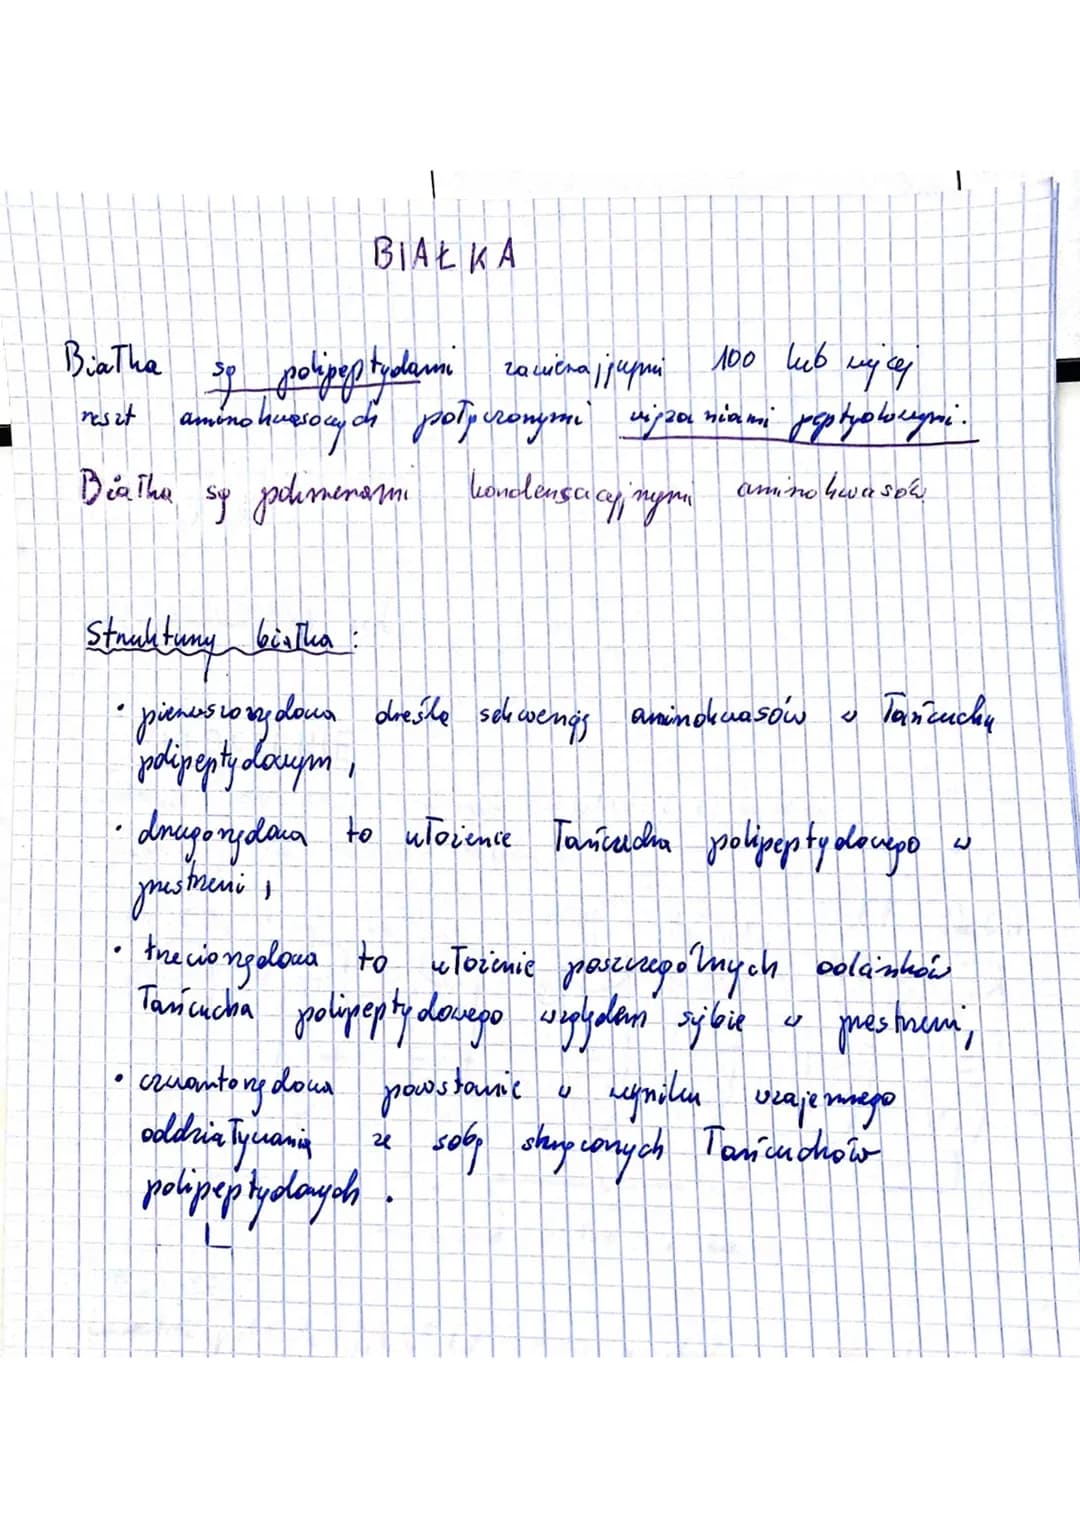 BIAŁKA
Białka są polipeptydami zawierającymi 100 lub więcej
reszt aminokwasowych połączonymi wiązaniami peptydowymi.
Białka są polimerami kondensacyjnymi aminokwasów
Struktury białka :
• pierwszorzędowa określa sekwencję aminokwasów w łańcuchu
polipeptydowym ,
• drugorzędowa to ułożenie łańcucha polipeptydowego w
przestrzeni ,
• trzeciorzędowa to ułożenie poszczególnych odcinków
łańcucha polipeptydowego względem siebie w przestrzeni,
• czwartorzędowa powstanie w wyniku wzajemnego
oddziaływania ze sobą skręconych łańcuchów
polipeptydowych .